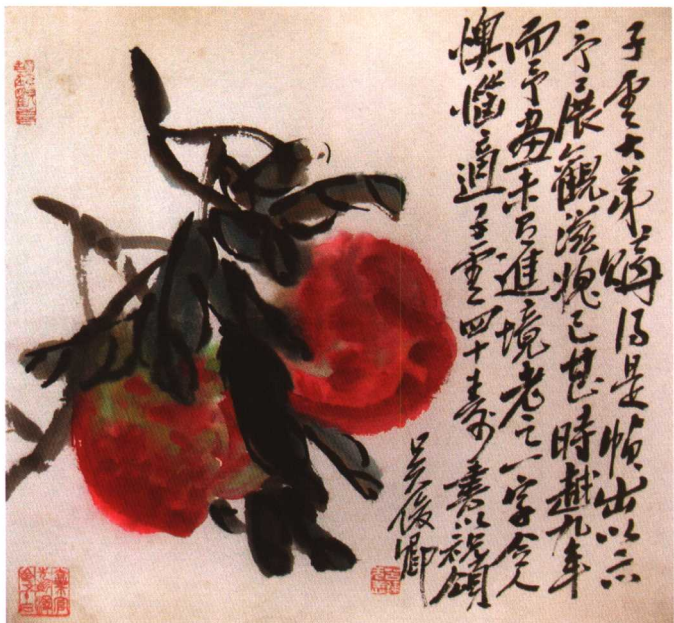 子云大弟購得是幀出以示
予展觀滋愧已甚時越九年
而予畫未有進境老之一字令人
懊惱適子云四十壽書以祝頌
吳俊卿